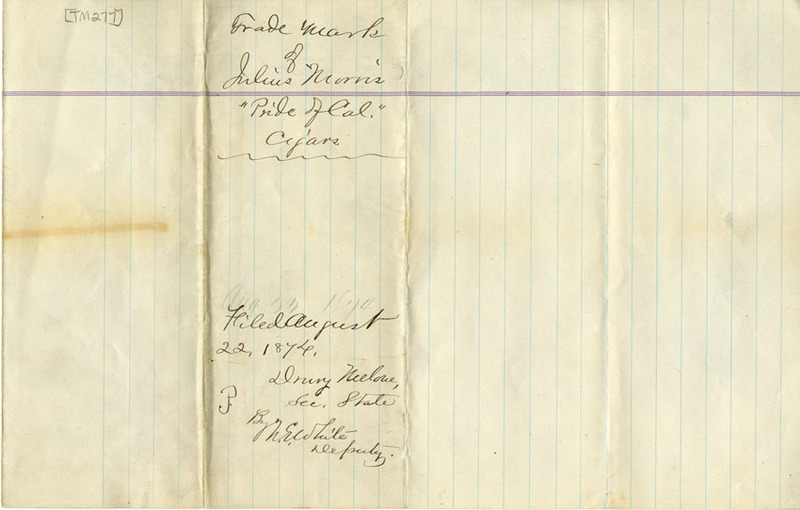 [TM277]
Trade Mark
of
Julius Morris
"Pride of Cal."
Cigars
Filed August
22, 1874.
Drury Melone,
Sec. State
By
White
Deputy.